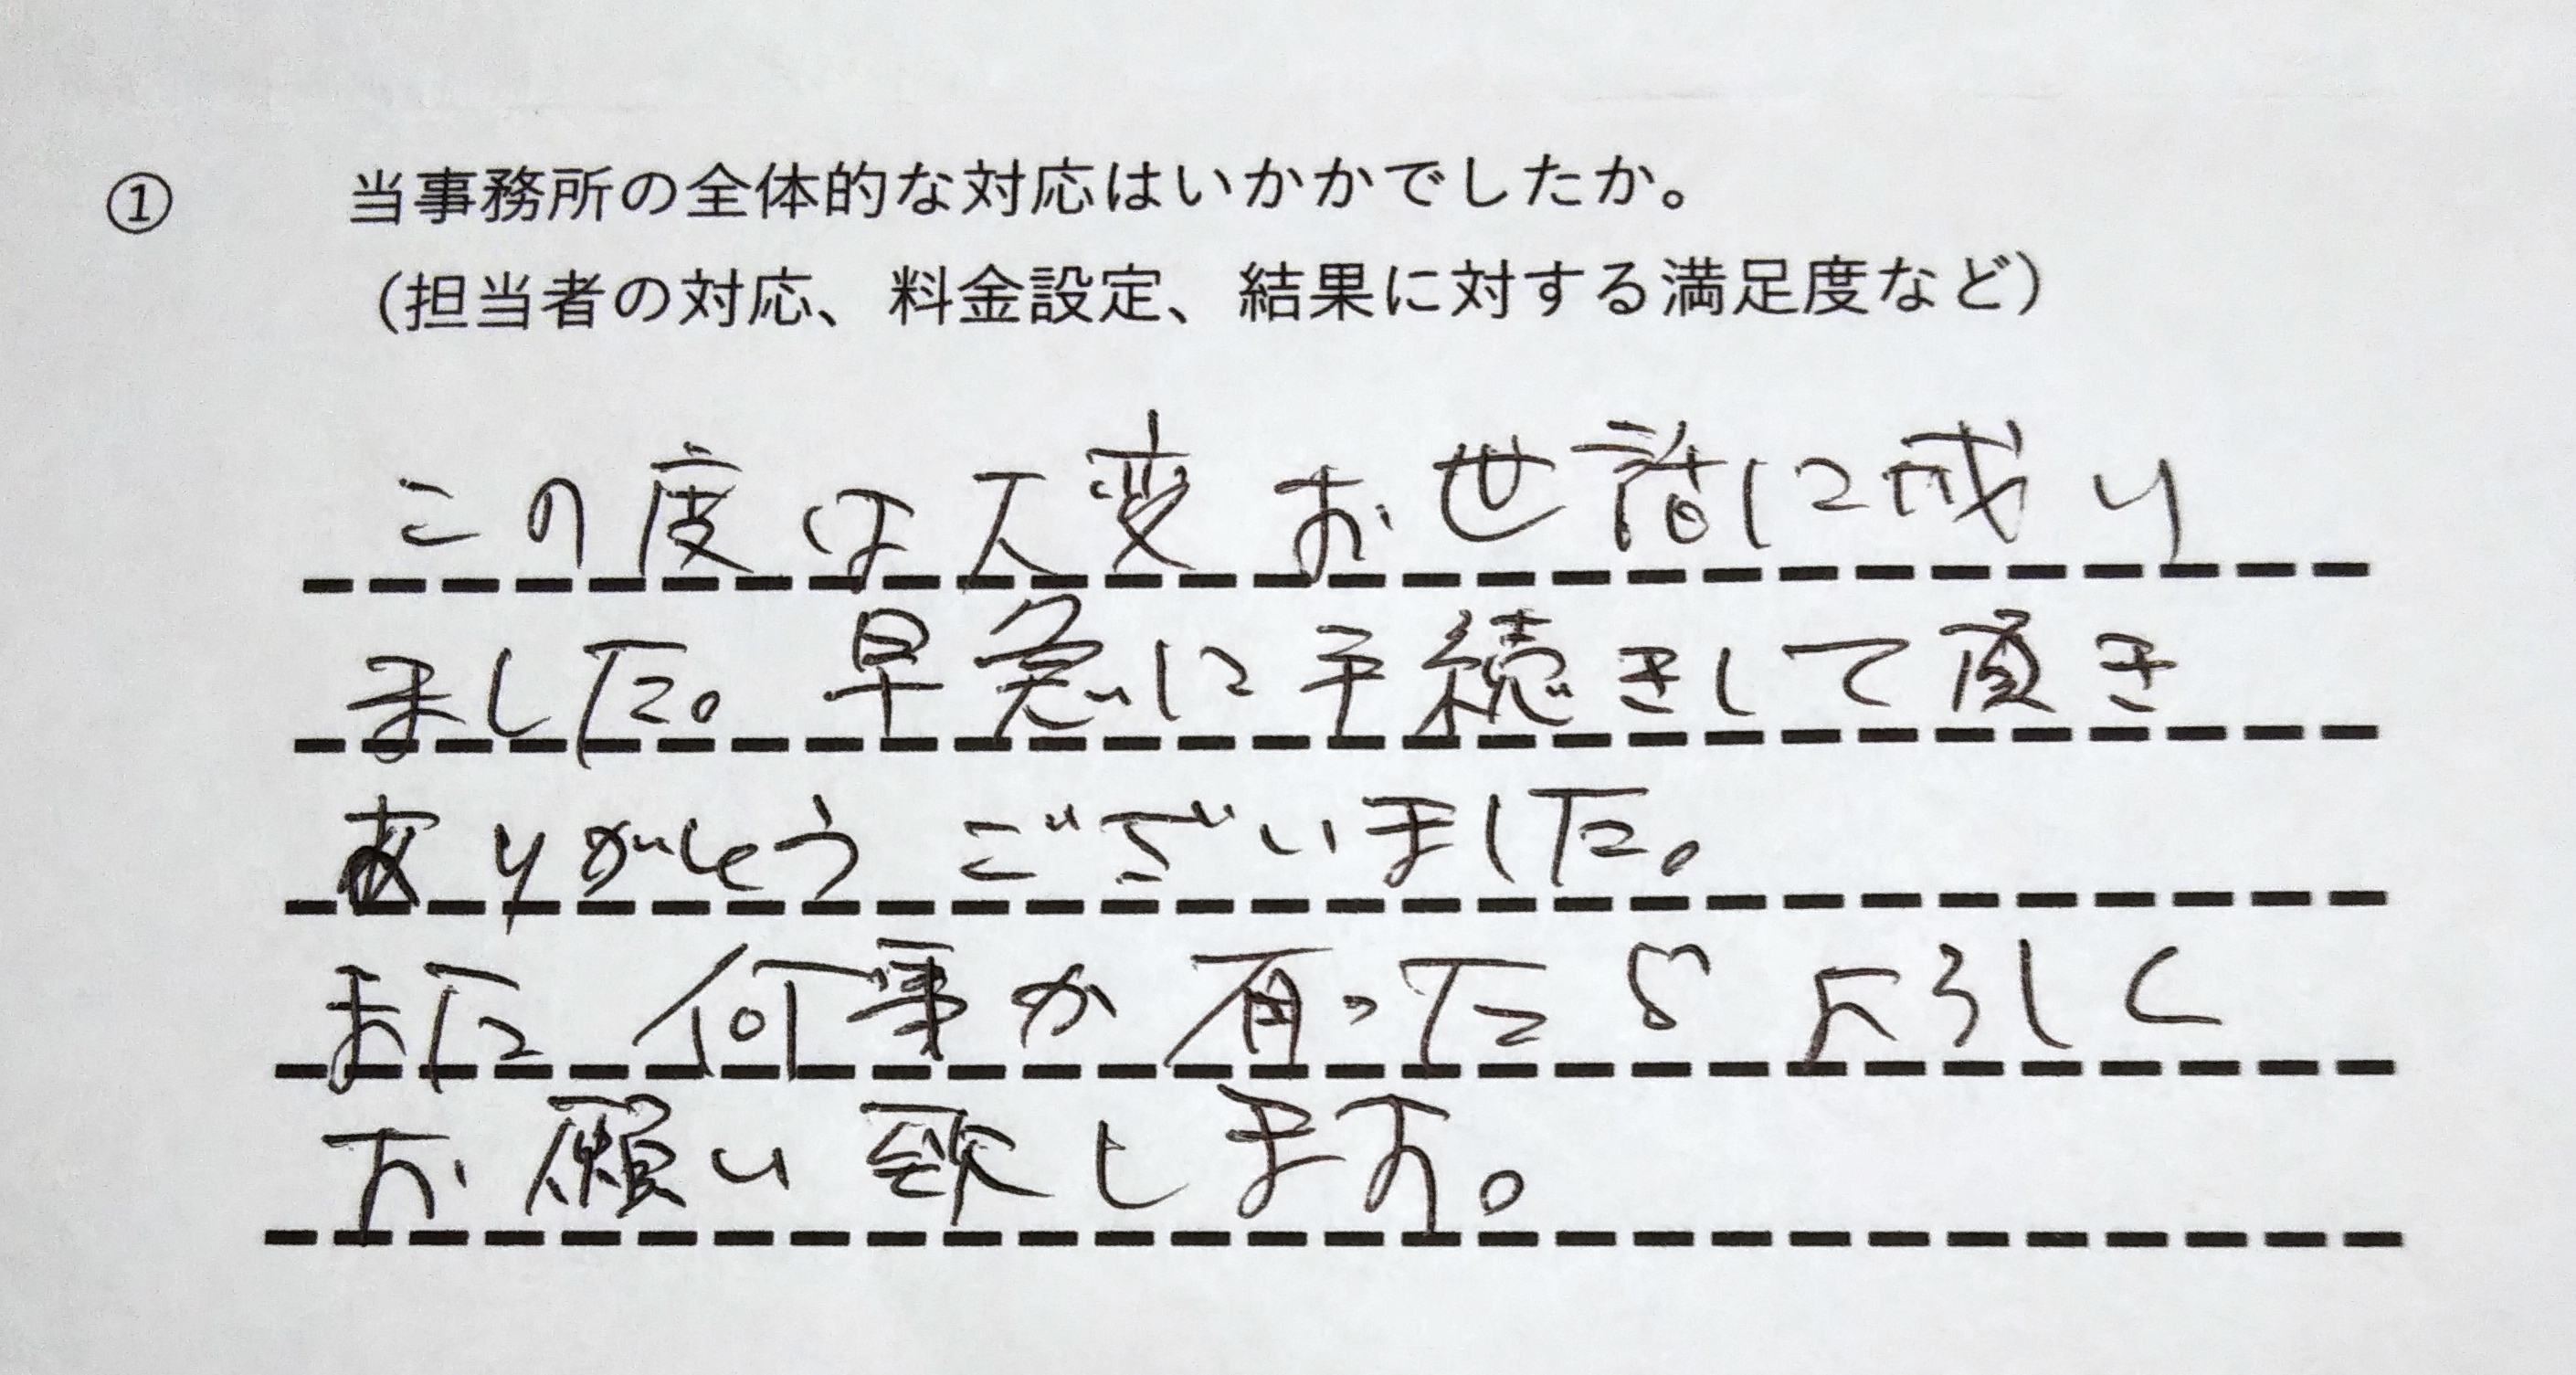 ① 当事務所の全体的な対応はいかかでしたか。
（担当者の対応、料金設定、結果に対する満足度など）
この度は大変お世話に成り
ました。早急に手続きして頂き
ありがとうございました。
また何事か有ったらよろしく
お願い致します。